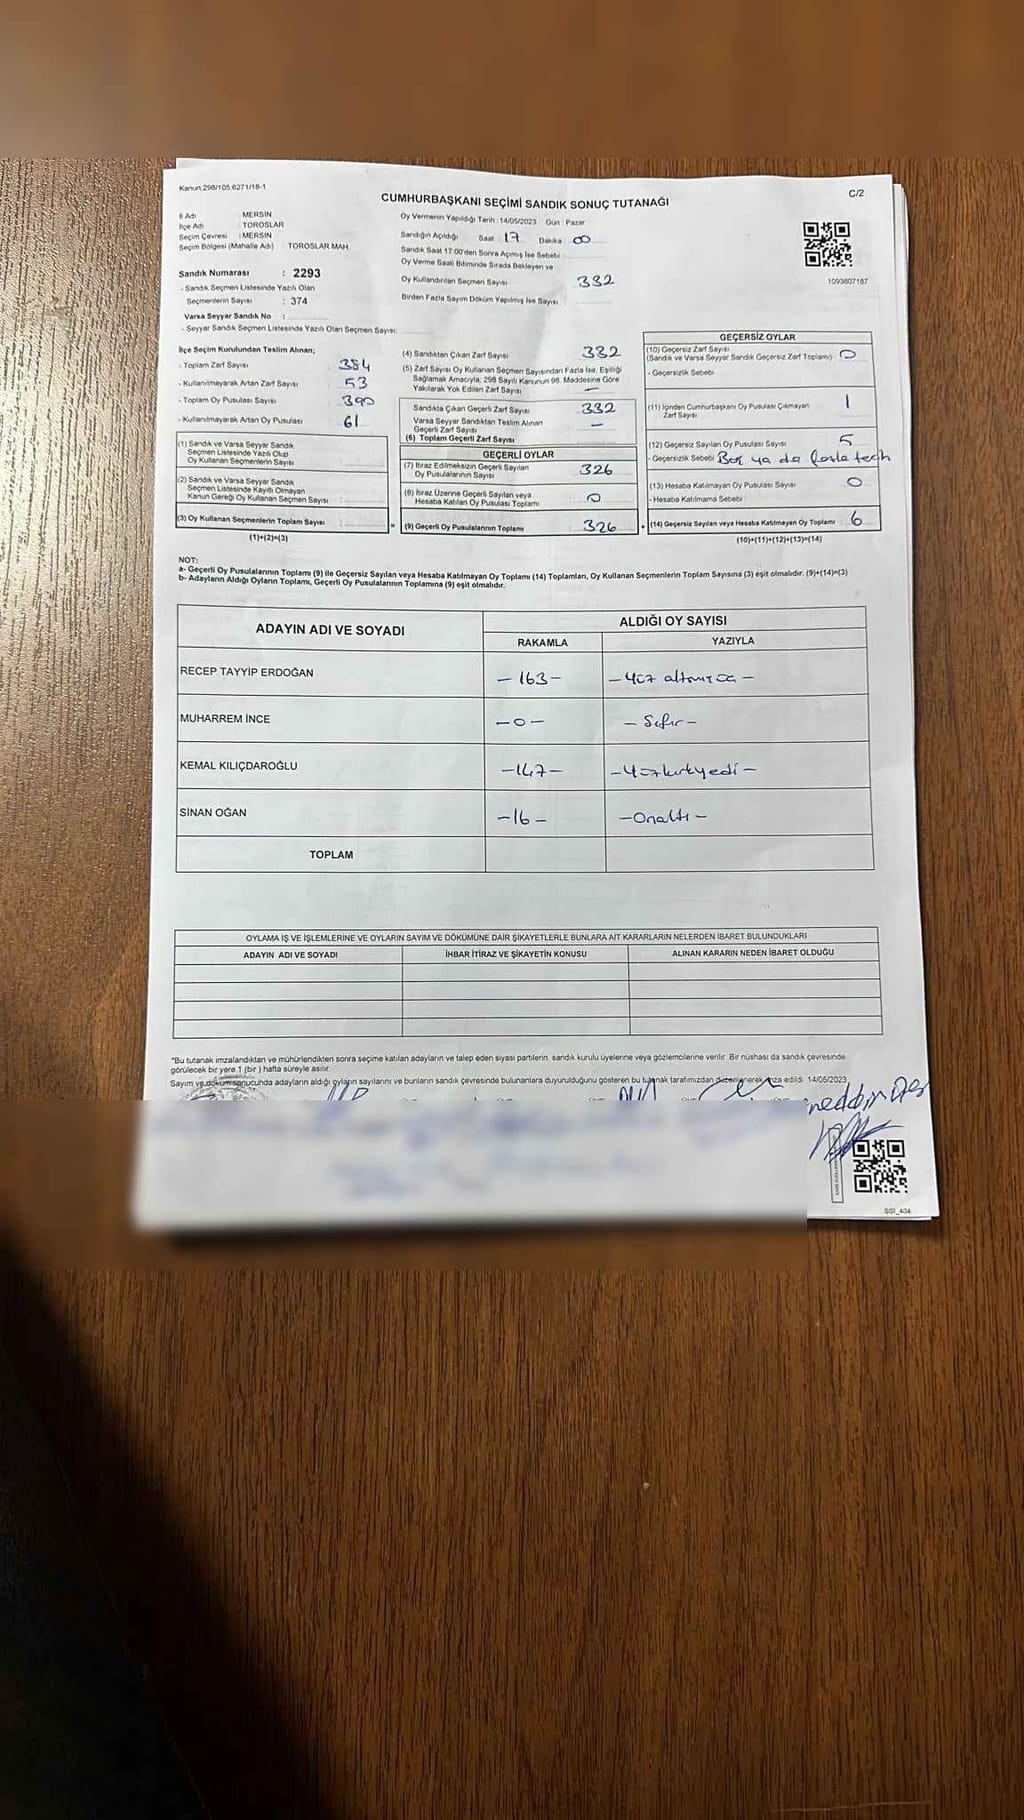 Kanun:298/105;6271/18-1
C/2
CUMHURBAŞKANI SEÇİMİ SANDIK SONUÇ TUTANAĞI
İl Adı : MERSİN
İlçe Adı : TOROSLAR
Seçim Çevresi : MERSİN
Seçim Bölgesi (Mahalle Adı) : TOROSLAR MAH.
Sandık Numarası : 2293
- Sandık Seçmen Listesinde Yazılı Olan
Seçmenlerin Sayısı : 374
Varsa Seyyar Sandık No :
- Seyyar Sandık Seçmen Listesinde Yazılı Olan Seçmen Sayısı:
Oy Vermenin Yapıldığı Tarih :14/05/2023 Gün : Pazar
Sandığın Açıldığı Saat 17 Dakika 00
Sandık Saat 17:00'den Sonra Açmış İse Sebebi
Oy Verme Saati Bitiminde Sırada Bekleyen ve
Oy Kullandırılan Seçmen Sayısı 332
Birden Fazla Sayım Döküm Yapılmış İse Sayısı
1093807187
İlçe Seçim Kurulundan Teslim Alınan;
- Toplam Zarf Sayısı 384
- Kullanılmayarak Artan Zarf Sayısı 53
- Toplam Oy Pusulası Sayısı 390
- Kullanılmayarak Artan Oy Pusulası 61
(1) Sandık ve Varsa Seyyar Sandık
Seçmen Listesinde Yazılı Olup
Oy Kullanan Seçmenlerin Sayısı
(2) Sandık ve Varsa Seyyar Sandık
Seçmen Listesinde Kayıtlı Olmayan
Kanun Gereği Oy Kullanan Seçmen Sayısı
(3) Oy Kullanan Seçmenlerin Toplam Sayısı
(1)+(2)=(3)
(4) Sandıktan Çıkan Zarf Sayısı 332
(5) Zarf Sayısı Oy Kullanan Seçmen Sayısından Fazla İse, Eşitliği
Sağlamak Amacıyla; 298 Sayılı Kanunun 98. Maddesine Göre
Yakılarak Yok Edilen Zarf Sayısı –
Sandıkta Çıkan Geçerli Zarf Sayısı 332
Varsa Seyyar Sandıktan Teslim Alınan
Geçerli Zarf Sayısı –
(6) Toplam Geçerli Zarf Sayısı
GEÇERLİ OYLAR
(7) İtiraz Edilmeksizin Geçerli Sayılan
Oy Pusulalarının Sayısı 326
(8) İtiraz Üzerine Geçerli Sayılan veya
Hesaba Katılan Oy Pusulası Toplamı 0
= (9) Geçerli Oy Pusulalarının Toplamı 326
GEÇERSİZ OYLAR
(10) Geçersiz Zarf Sayısı
(Sandık ve Varsa Seyyar Sandık Geçersiz Zarf Toplamı) 0
- Geçersizlik Sebebi
(11) İçinden Cumhurbaşkanı Oy Pusulası Çıkmayan
Zarf Sayısı 1
(12) Geçersiz Sayılan Oy Pusulası Sayısı 5
- Geçersizlik Sebebi Boş ya da fazla
(13) Hesaba Katılmayan Oy Pusulası Sayısı 0
- Hesaba Katılmama Sebebi
+ (14) Geçersiz Sayılan veya Hesaba Katılmayan Oy Toplamı 6
(10)+(11)+(12)+(13)=(14)
NOT:
a- Geçerli Oy Pusulalarının Toplamı (9) ile Geçersiz Sayılan veya Hesaba Katılmayan Oy Toplamı (14) Toplamları, Oy Kullanan Seçmenlerin Toplam Sayısına (3) eşit olmalıdır. (9)+(14)=(3)
b- Adayların Aldığı Oyların Toplamı, Geçerli Oy Pusulalarının Toplamına (9) eşit olmalıdır.
ADAYIN ADI VE SOYADI ALDIĞI OY SAYISI
RAKAMLA YAZIYLA
RECEP TAYYİP ERDOĞAN – 163 – – Yüz altmış üç –
MUHARREM İNCE – 0 – – Sıfır –
KEMAL KILIÇDAROĞLU – 147 – – Yüzkırkyedi –
SİNAN OĞAN – 16 – – Onaltı –
TOPLAM
OYLAMA İŞ VE İŞLEMLERİNE VE OYLARIN SAYIM VE DÖKÜMÜNE DAİR ŞİKAYETLERLE BUNLARA AİT KARARLARIN NELERDEN İBARET BULUNDUKLARI
ADAYIN ADI VE SOYADI İHBAR İTİRAZ VE ŞİKAYETİN KONUSU ALINAN KARARIN NEDEN İBARET OLDUĞU
*Bu tutanak imzalandıktan ve mühürlendikten sonra seçime katılan adayların ve talep eden siyasi partilerin, sandık kurulu üyelerine veya gözlemcilerine verilir. Bir nüshası da sandık çevresinde
görülecek bir yere 1 (bir ) hafta süreyle asılır.
Sayım ve döküm sonucunda adayların aldığı oyların sayılarını ve bunların sandık çevresinde bulunanlara duyurulduğunu gösteren bu tutanak tarafımızdan düzenlenerek imza edildi. 14/05/2023
SSI_404